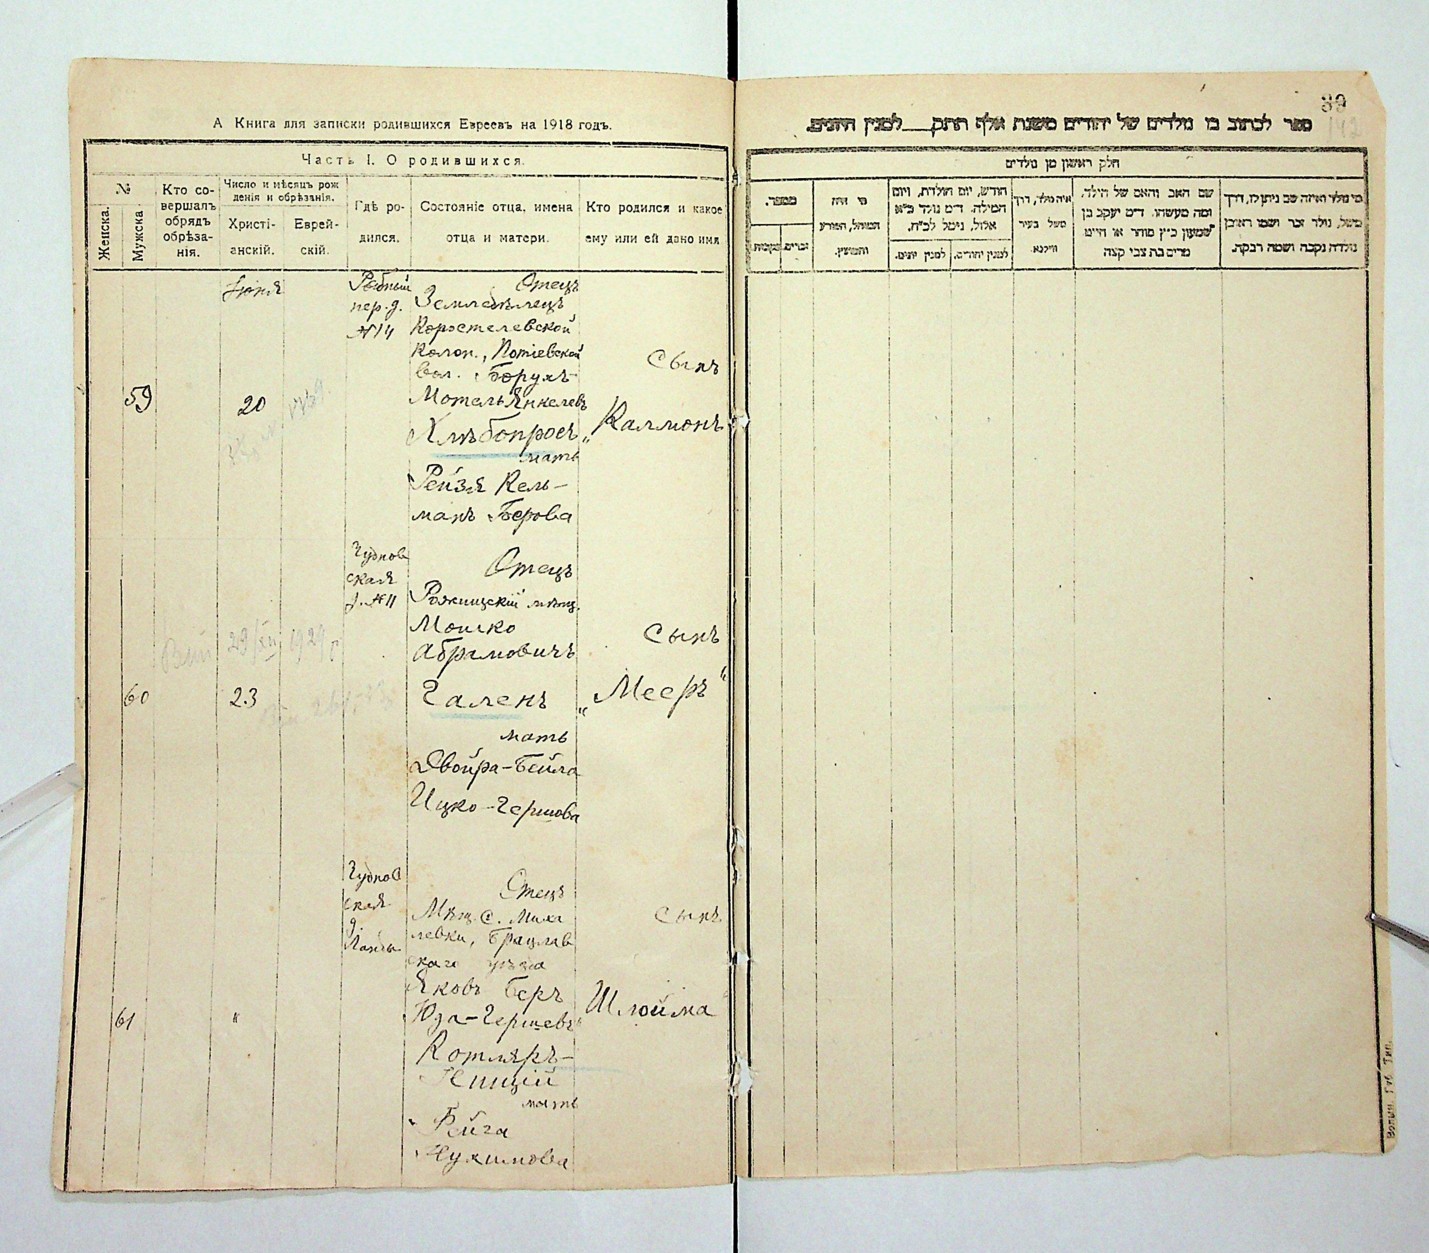 А Книга для записки родившихся Евреевъ на 1918 годъ.
Часть I. О родившихся.
№
Женска.
Мужска
Кто со-
вершалъ
обрядъ
обрѣза-
нія.
Число и мѣсяцъ рож
денія и обрѣзанія.
Христі-
анскій.
Еврей-
скій.
Гдѣ ро-
дился.
Состояніе отца, имена
отца и матери.
Кто родился и какое
ему или ей дано имя
59
Іюня
20
Рыбный
пер. д.
№14
Отецъ
Земледѣлецъ
Коростелевской
Колон., Потіевской
вол. Борухъ-
Мотель Янкелевъ
Хлѣбопросъ
мать
Рейзя Кель-
манъ Берова
Сынъ
„Калмонъ
60
29/XII 1929 г
23
Чуднов
ская
д. №11
Отецъ
Рожищскій мѣщ.
Мошко
Абрамовичъ
Галенъ
мать
Двойра-Бейла
Ицко-Гершова
Сынъ
„Мееръ“
61
"
Чуднов
ская
д.
Отецъ
Мѣщ. С. Миха
левки, Брацлав
скаго уѣзда
Яковъ Беръ
Юда-Гершевъ
Котляръ-
Ницій
мать
Фейга
Нухимова
Сынъ
Шлойма
39
142
ספר לכתוב בו נולדים של יהודים משנת אלף תתק___ למנין היונים.
חלק ראשון מן נולדים
מספר.
נקבות
זכרים
מי היה
המוהל, הפורע
והמוצץ.
חודש, יום הולדת, ויום
המילה. ד״מ נולד כ״א
אלול, נימל לכ״ח.
למנין יונים.
למנין יהודים.
איה נולד, דרך
משל בעיר
ווילנא
שם האב והאם של הילד,
ומה מעשהו. ד״מ יעקב בן
שמעון כ״ץ סוחר או חייט
מרים בת צבי קצה
מי נולד ואיזה שם ניתן לו, דרך
משל, נולד זכר ושמו ראובן
נולדה נקבה ושמה רבקה.
Волын. Губ. Тип.